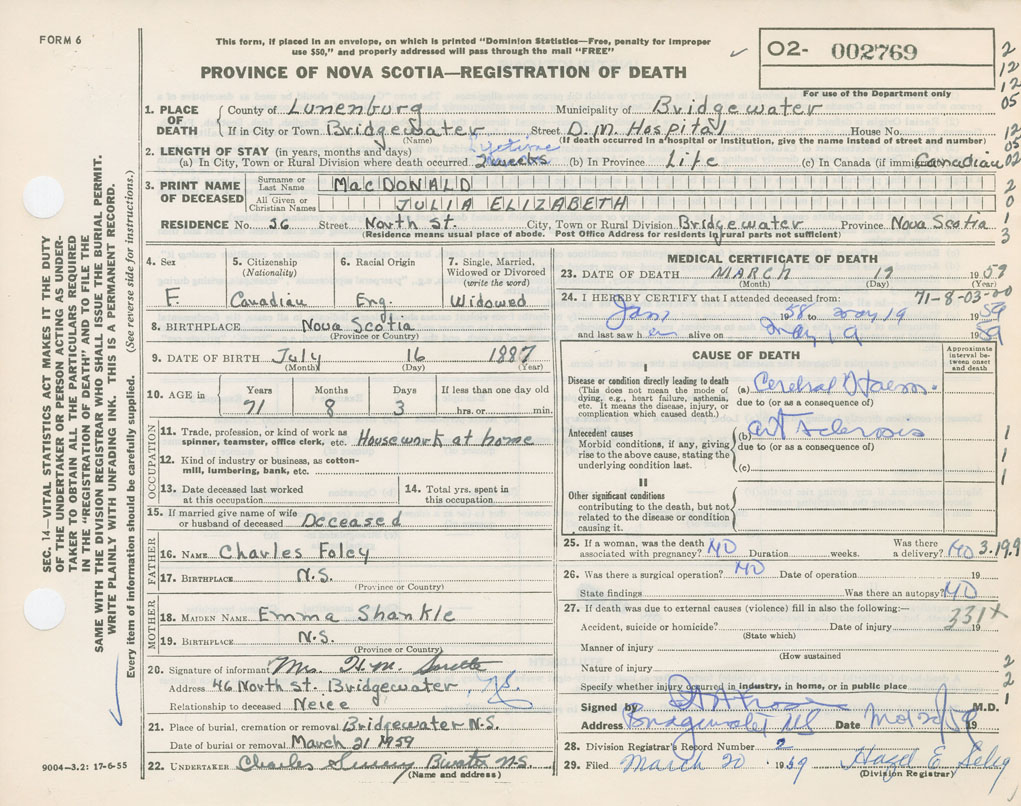 FORM 6
This form, if placed in an envelope, on which is printed "Dominion Statistics—Free, penalty for improper
use $50," and properly addressed will pass through the mail "FREE"
O2- 002769
For use of the Department only
PROVINCE OF NOVA SCOTIA—REGISTRATION OF DEATH
1. PLACE OF DEATH County of Lunenburg Municipality of Bridgewater
If in City or Town Bridgewater Street D.M. Hospital House No.
(Name) (If death occurred in a hospital or Institution, give the name instead of street and number)
2. LENGTH OF STAY (in years, months and days) Lifetime
(a) In City, Town or Rural Division where death occurred 2 weeks (b) In Province Life (c) In Canada (if immigrant) Canadian
3. PRINT NAME OF DECEASED Surname or Last Name MacDONALD
All Given or Christian Names JULIA ELIZABETH
RESIDENCE No. 36 Street North St. City, Town or Rural Division Bridgewater Province Nova Scotia
(Residence means usual place of abode. Post Office Address for residents in rural parts not sufficient)
4. Sex F.
5. Citizenship (Nationality) Canadian
6. Racial Origin Eng.
7. Single, Married, Widowed or Divorced (write the word) Widowed
8. BIRTHPLACE Nova Scotia
(Province or Country)
9. DATE OF BIRTH July 16 1887
(Month) (Day) (Year)
10. AGE in Years 71 Months 8 Days 3 If less than one day old hrs. or min.
OCCUPATION
11. Trade, profession, or kind of work as spinner, teamster, office clerk, etc. Housework at home
12. Kind of industry or business, as cotton-mill, lumbering, bank, etc.
13. Date deceased last worked at this occupation
14. Total yrs. spent in this occupation
15. If married give name of wife or husband of deceased Deceased
FATHER
16. NAME Charles Foley
17. BIRTHPLACE N.S.
(Province or Country)
MOTHER
18. MAIDEN NAME Emma Shankle
19. BIRTHPLACE N.S.
(Province or Country)
20. Signature of informant Mrs. H.M.
Address 46 North St. Bridgewater, N.S.
Relationship to deceased Neice
21. Place of burial, cremation or removal Bridgewater N.S.
Date of burial or removal March 21 1959
22. UNDERTAKER Charles N.S.
(Name and address)
MEDICAL CERTIFICATE OF DEATH
23. DATE OF DEATH MARCH 19 1959
(Month) (Day) (Year)
71-8-03-00
24. I HEREBY CERTIFY that I attended deceased from:
Jan 1958 to May 19 1959
and last saw h er alive on May 19 1959
CAUSE OF DEATH
Approximate interval between onset and death
I
Disease or condition directly leading to death
(This does not mean the mode of dying, e.g., heart failure, asthenia, etc. It means the disease, injury, or complication which caused death.)
(a) Cerebral
due to (or as a consequence of)
Antecedent causes
Morbid conditions, if any, giving rise to the above cause, stating the underlying condition last.
(b) Art Sclerosis
due to (or as a consequence of)
(c)
II
Other significant conditions
contributing to the death, but not related to the disease or condition causing it.
25. If a woman, was the death associated with pregnancy? NO Duration weeks. Was there a delivery? NO 3.19.9
26. Was there a surgical operation? NO Date of operation 19
State findings Was there an autopsy? NO
27. If death was due to external causes (violence) fill in also the following:—
331X
Accident, suicide or homicide? Date of injury 19
(State which)
Manner of injury
(How sustained
Nature of injury
Specify whether injury occurred in industry, in home, or in public place
Signed by M.D.
Address Bridgewater NS Date 59
28. Division Registrar's Record Number 2
29. Filed March 20 1959 Hazel E. Selig
(Division Registrar)
SEC. 14—VITAL STATISTICS ACT MAKES IT THE DUTY
OF THE UNDERTAKER OR PERSON ACTING AS UNDER-
TAKER TO OBTAIN ALL THE PARTICULARS REQUIRED
IN THE "REGISTRATION OF DEATH" AND TO FILE THE
SAME WITH THE DIVISION REGISTRAR WHO SHALL ISSUE THE BURIAL PERMIT.
WRITE PLAINLY WITH UNFADING INK. THIS IS A PERMANENT RECORD.
Every item of information should be carefully supplied. (See reverse side for instructions.)
9004—3.2: 17-6-55
2
12
12
05
12
05
02
2
0
1
3
1
1
1
2
2
1